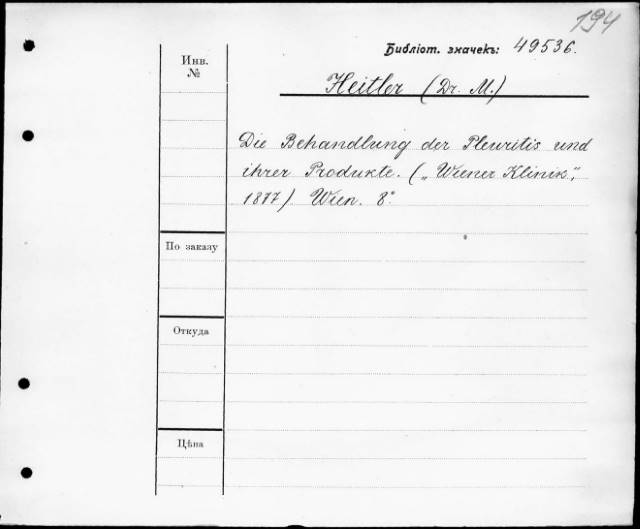 194
Библіот. значекъ: 49536.
Инв.
№
Heitler (Dr. M.)
Die Behandlung der Pleuritis und
ihrer Produkte. („Wiener Klinik“,
1877) Wien. 8°
По заказу
Откуда
Цѣна